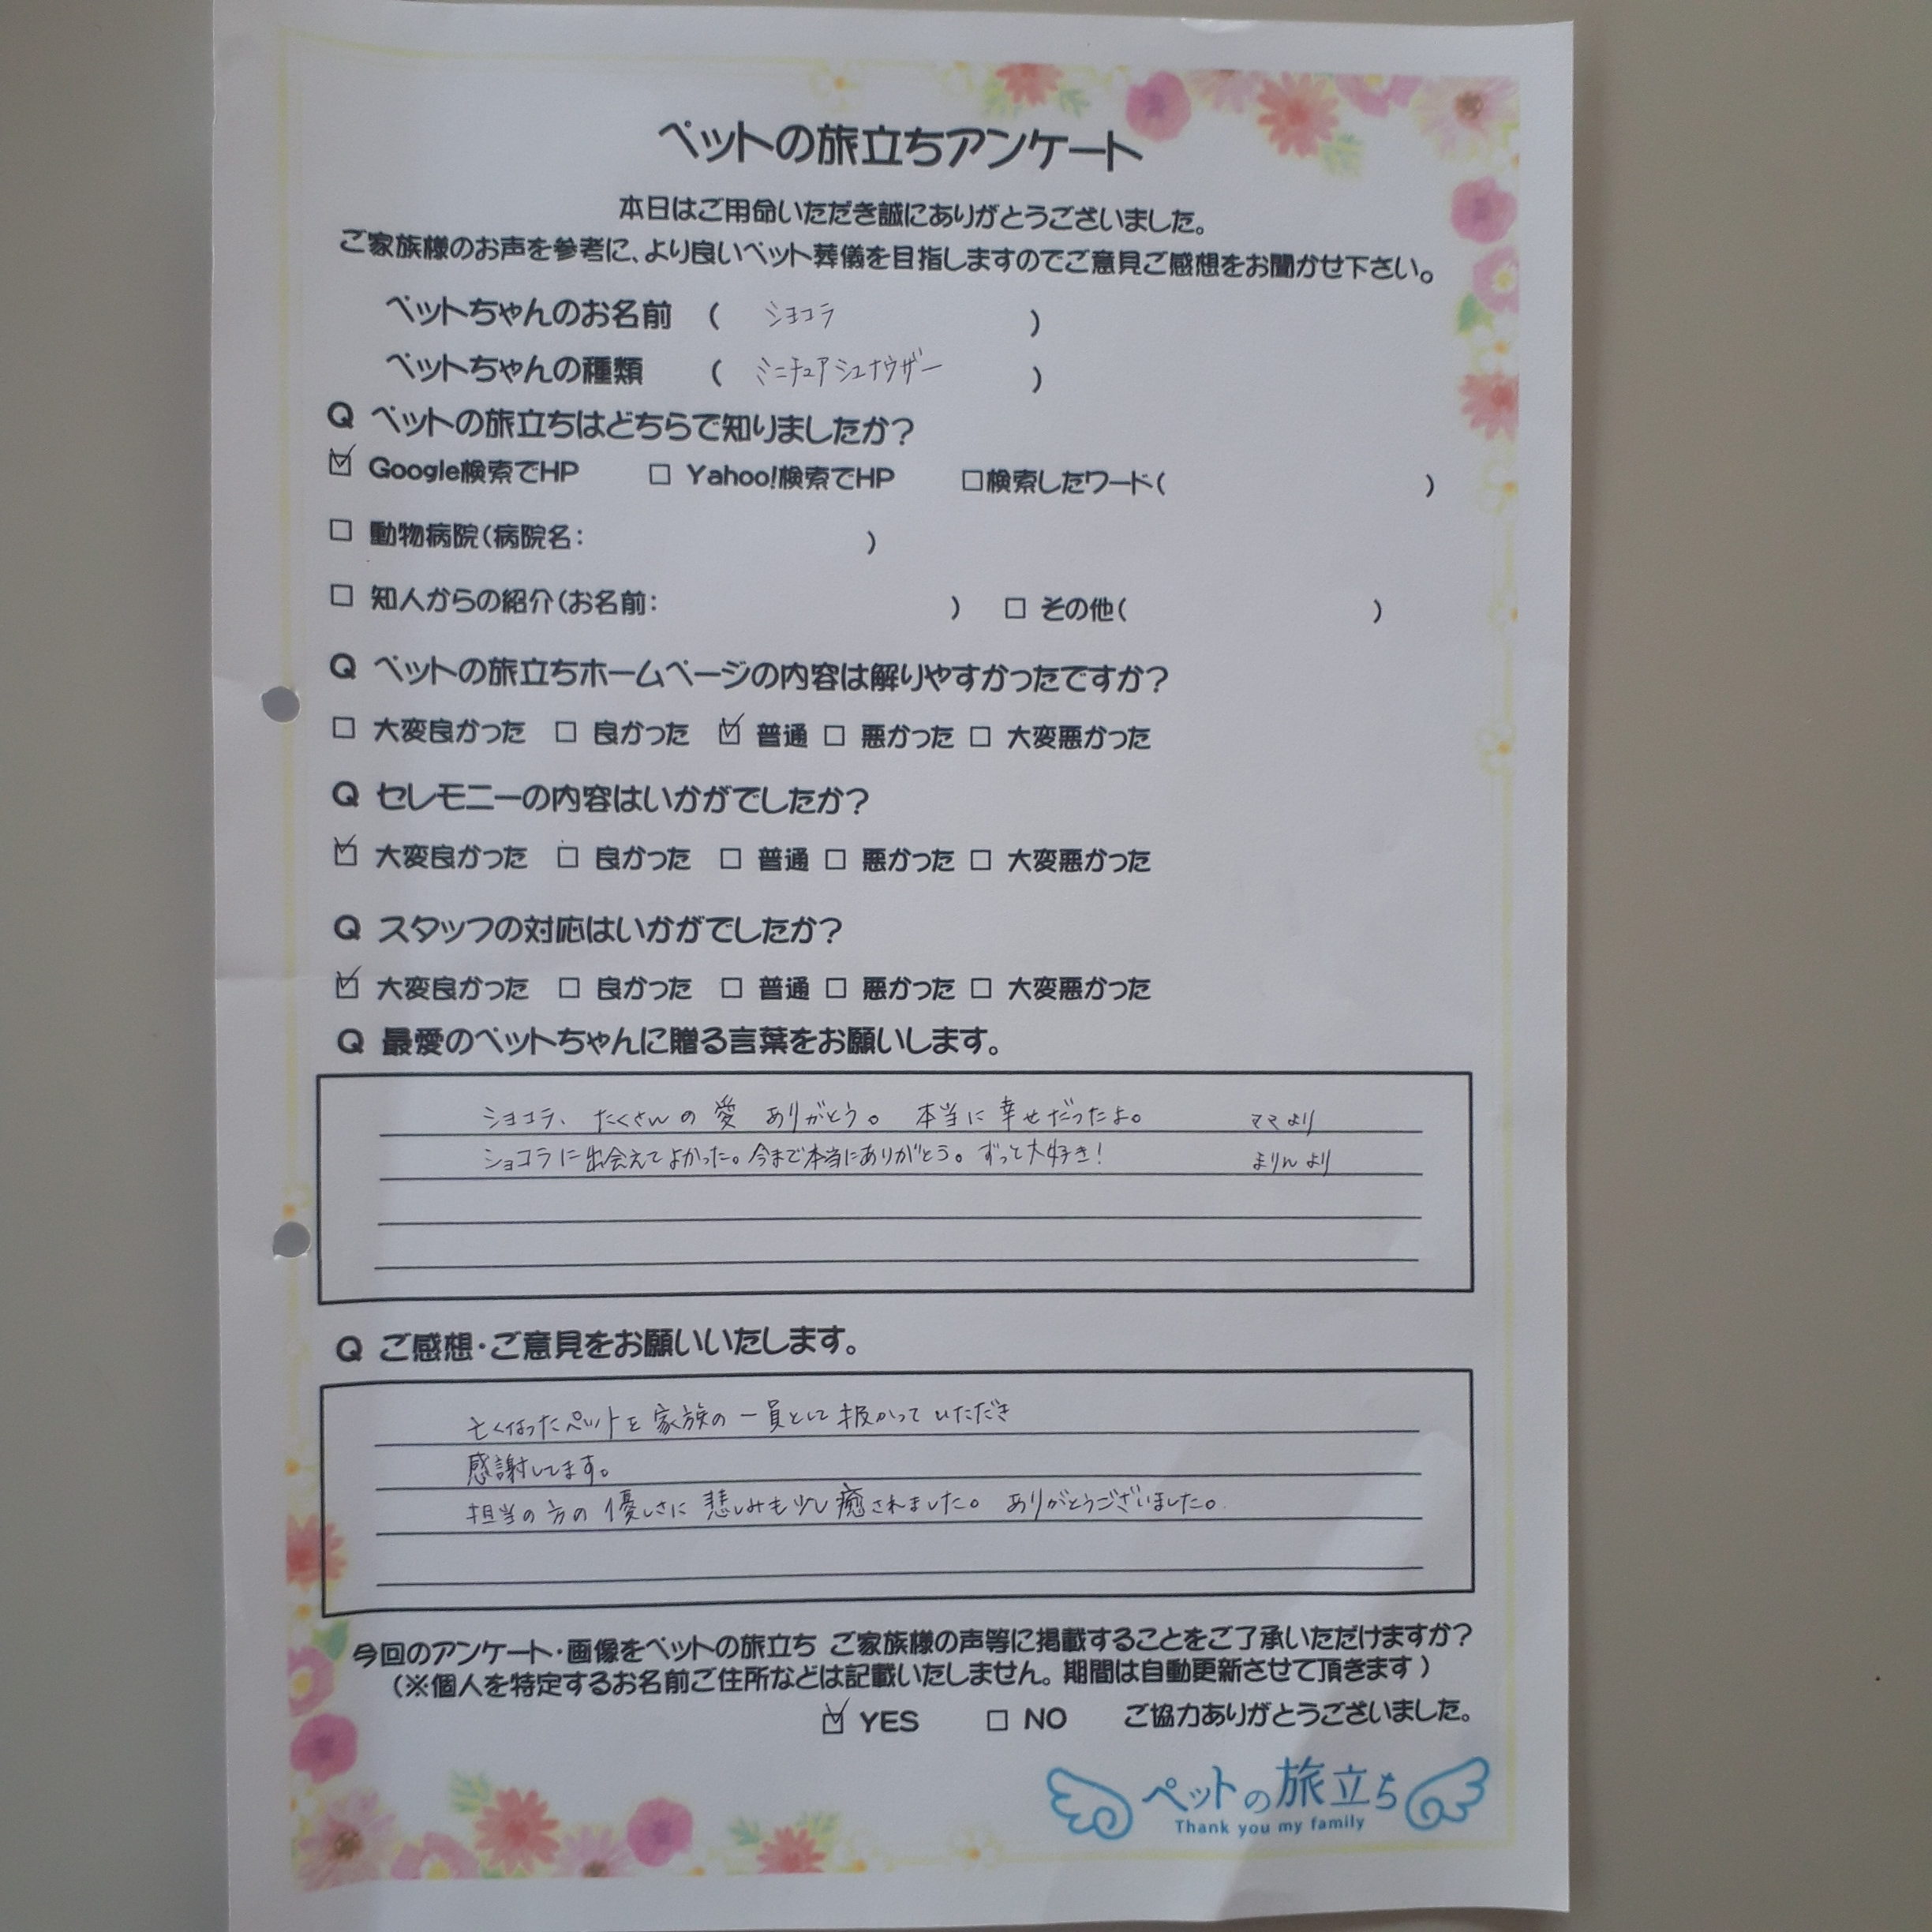 ペットの旅立ちアンケート
本日はご用命いただき誠にありがとうございました。
ご家族様のお声を参考に、より良いペット葬儀を目指しますのでご意見ご感想をお聞かせ下さい。
ペットちゃんのお名前 ( ショコラ )
ペットちゃんの種類 ( ミニチュアシュナウザー )
Q ペットの旅立ちはどちらで知りましたか?
☑ Google検索でHP □ Yahoo!検索でHP □検索したワード( )
□ 動物病院(病院名: )
□ 知人からの紹介(お名前: ) □ その他( )
Q ペットの旅立ちホームページの内容は解りやすかったですか?
□ 大変良かった □ 良かった ☑ 普通 □ 悪かった □ 大変悪かった
Q セレモニーの内容はいかがでしたか?
☑ 大変良かった □ 良かった □ 普通 □ 悪かった □ 大変悪かった
Q スタッフの対応はいかがでしたか?
☑ 大変良かった □ 良かった □ 普通 □ 悪かった □ 大変悪かった
Q 最愛のペットちゃんに贈る言葉をお願いします。
ショコラ、たくさんの愛 ありがとう。 本当に幸せだったよ。 ママより
ショコラに出会えてよかった。今まで本当にありがとう。ずっと大好き! まりんより
Q ご感想・ご意見をお願いいたします。
亡くなったペットを家族の一員として扱かっていただき
感謝してます。
担当の方の優しさに悲しみも少し癒されました。 ありがとうございました。
今回のアンケート・画像をペットの旅立ち ご家族様の声等に掲載することをご了承いただけますか?
(※個人を特定するお名前ご住所などは記載いたしません。期間は自動更新させて頂きます)
☑ YES □ NO ご協力ありがとうございました。
ペットの旅立ち
Thank you my family